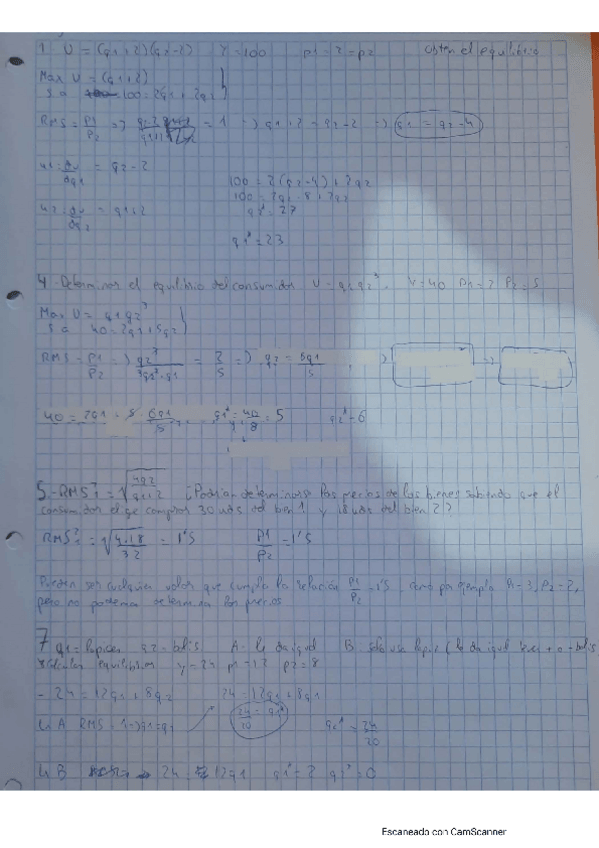 1. U = (q1+2)(q2-2) Y=100 p1=2=p2 Obten el equilibrio
Max U = (q1+2)
s.a 100 = 2q1 + 2q2
RMS = P1/P2 => = 1 => q1+2 = q2-2 => q1 = q2-4
u1: du/dq1 = q2-2
100 = 2(q2-4)+2q2
100 = 2q2-8+2q2
u2: du/dq2 = q1+2
q2* = 27
q1* = 23
4.-Determinar el equilibrio del consumidor U = q1q2³. Y=40 P1=2 P2=5
Max U = q1q2³
s.a 40=2q1+5q2
RMS = P1/P2 => q2³/3q2²·q1 = 2/5 => q2 = 6q1/5
40 = 2q1 + 5·6q1/5 q1* = 40/8 = 5 q2* = 6
5.-RMS = √4q2/q1+2 ¿Podrían determinarse los precios de los bienes sabiendo que el
consumidor elige comprar 30 uds del bien 1 y 18 uds del bien 2?
RMS = √4·18/32 = 1'5 P1/P2 = 1'5
Pueden ser cualquier valor que cumpla la relación P1/P2 = 1'5, como por ejemplo P1=3, P2=2,
pero no podemos determinar los precios
7 q1=lapices q2=bolis A- le da igual B- solo usa lapiz (le da igual tener + o - bolis
Calcular equilibrios y=24 p1=12 p2=8
- 24 = 12q1 + 8q2 24 = 12q1 + 8q1
L A RMS = 1 -> q1=q2 24/20 = q1* q2* = 24/20
L B 24 = 12q1 q1* = 2 q2* = 0
Escaneado con CamScanner